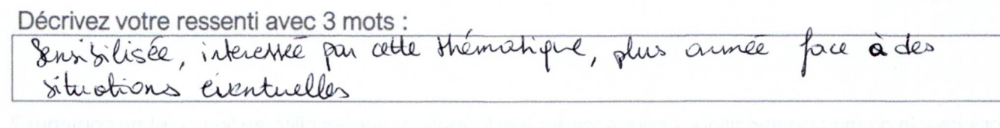 Décrivez votre ressenti avec 3 mots :
Sensibilisée, interessée par cette thématique, plus armée face à des
situations éventuelles